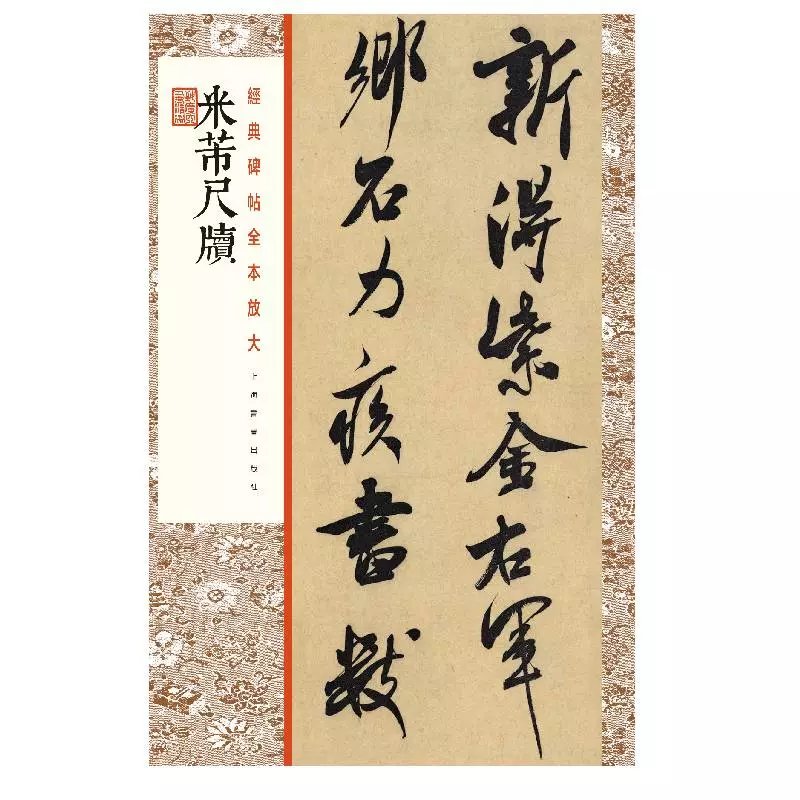 新得紫金右軍
鄉石力疾書數
經典碑帖全本放大
米芾尺牘
上海書畫出版社